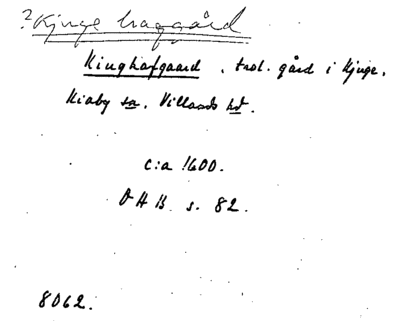 ? Kjuge haggård
Kiughafgaard. trol. gård i Kjuge,
Kiaby sn. Villands hd.
c:a 1600.
Ö H B s. 82.
8062.